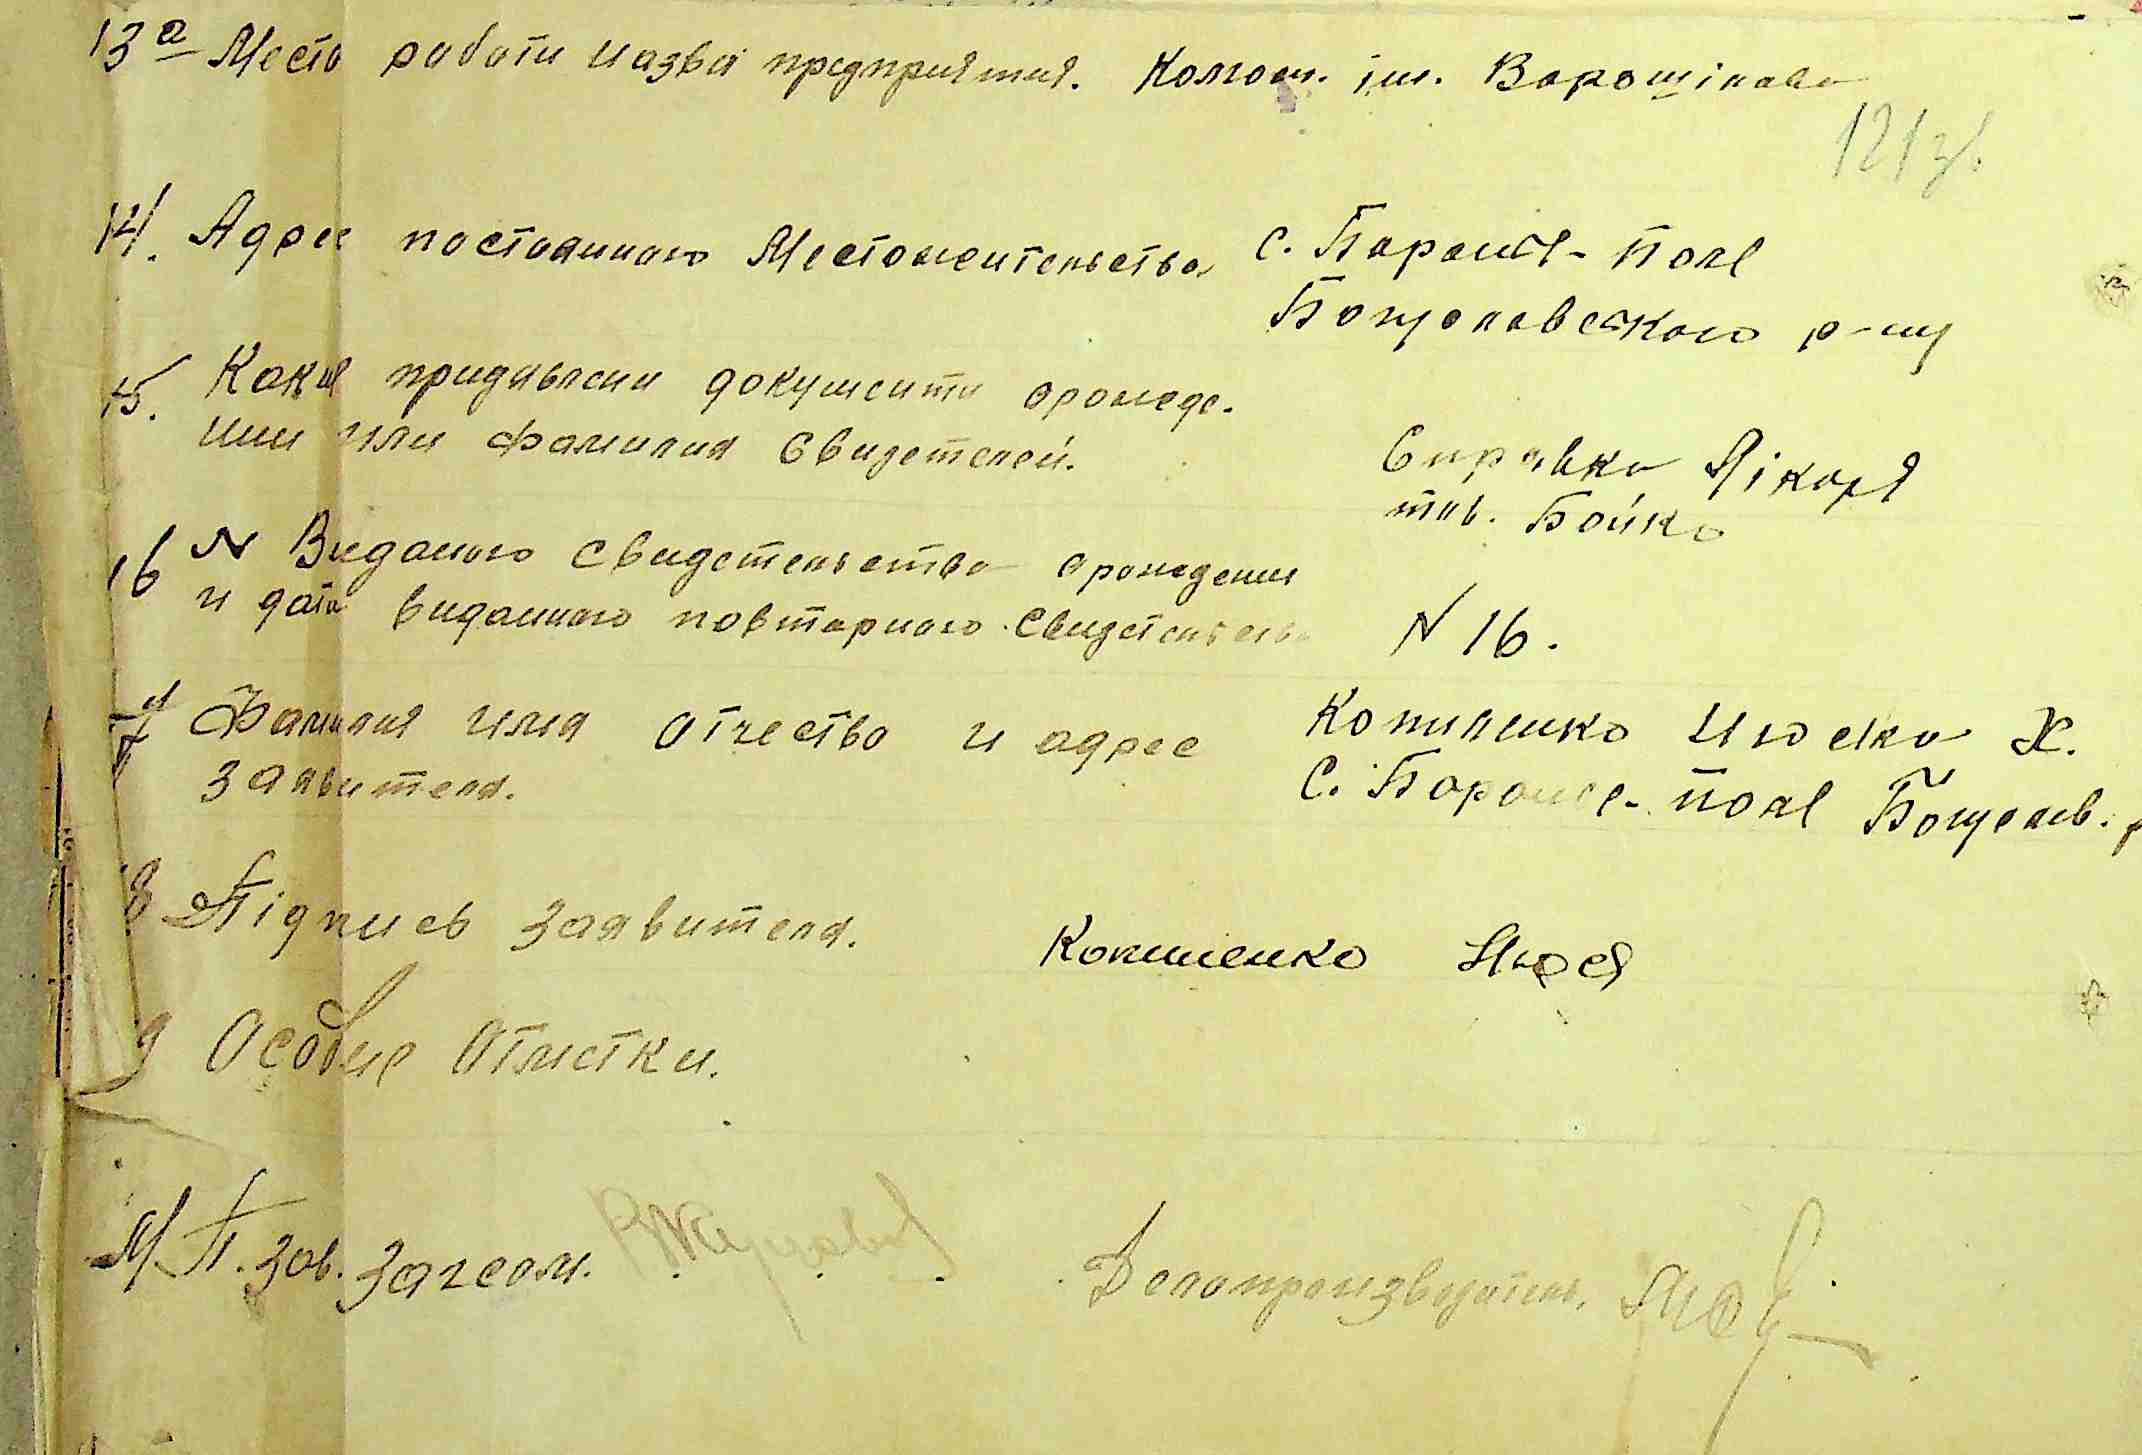 13а Место работи назва предприятия. Колгосп. ім. Ворошілова
121зв.
14. Адрес постоянного Местожительства с. Баранье-Поле
Божедаровского р-ну
15. Какие придявлени документи орожде-
нии или фамилия Свидетелей. Справка Лікаря
тов. Бойко
16 N Виданого свидетельства орождении
и дата виданного повторного Свидетельств N 16.
17 Фамилия имя отчество и адрес Копиленко Нюська Х.
заявителя. С. Баранье-Поле
18 Підпись заявителя. Копиленко Нюся
19 Особые отметки.
М.П. Зав. Загсом. Делопроизводитель.